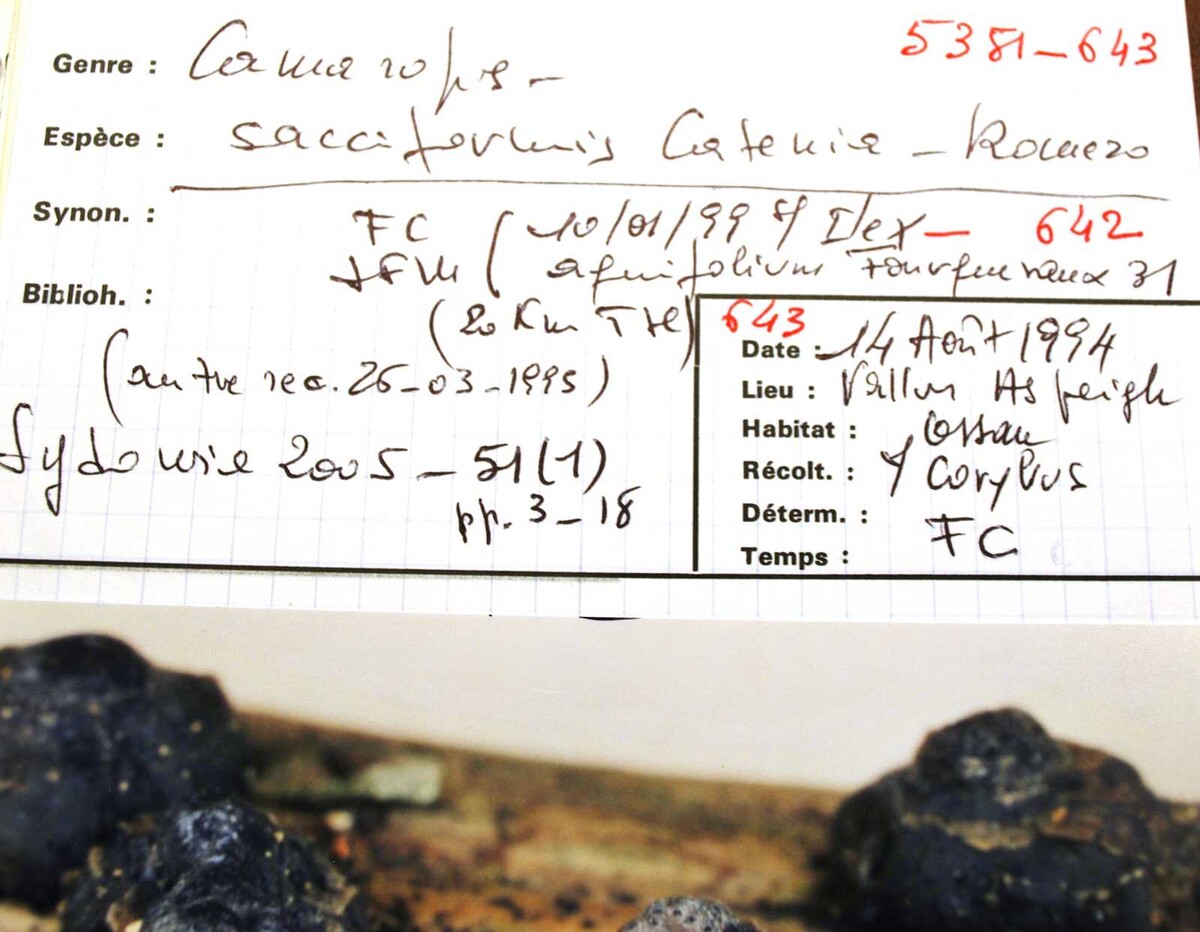 5381-643
Genre : Camarops -
Espèce : sacciformis Catenia - Romero
Synon. : FC ( 10/01/99 s/ Ilex - 642
JFM ( aquifolium Fourquevaux 31
Biblioh. : (20 Km TSE)
(autre rec. 26-03-1995)
Sydowia 2005 - 51(1)
pp. 3-18
643
Date : 14 Août 1994
Lieu : Vallon Aspeigh
Habitat : Ossau
Récolt. : s/ Corylus
Déterm. : FC
Temps :